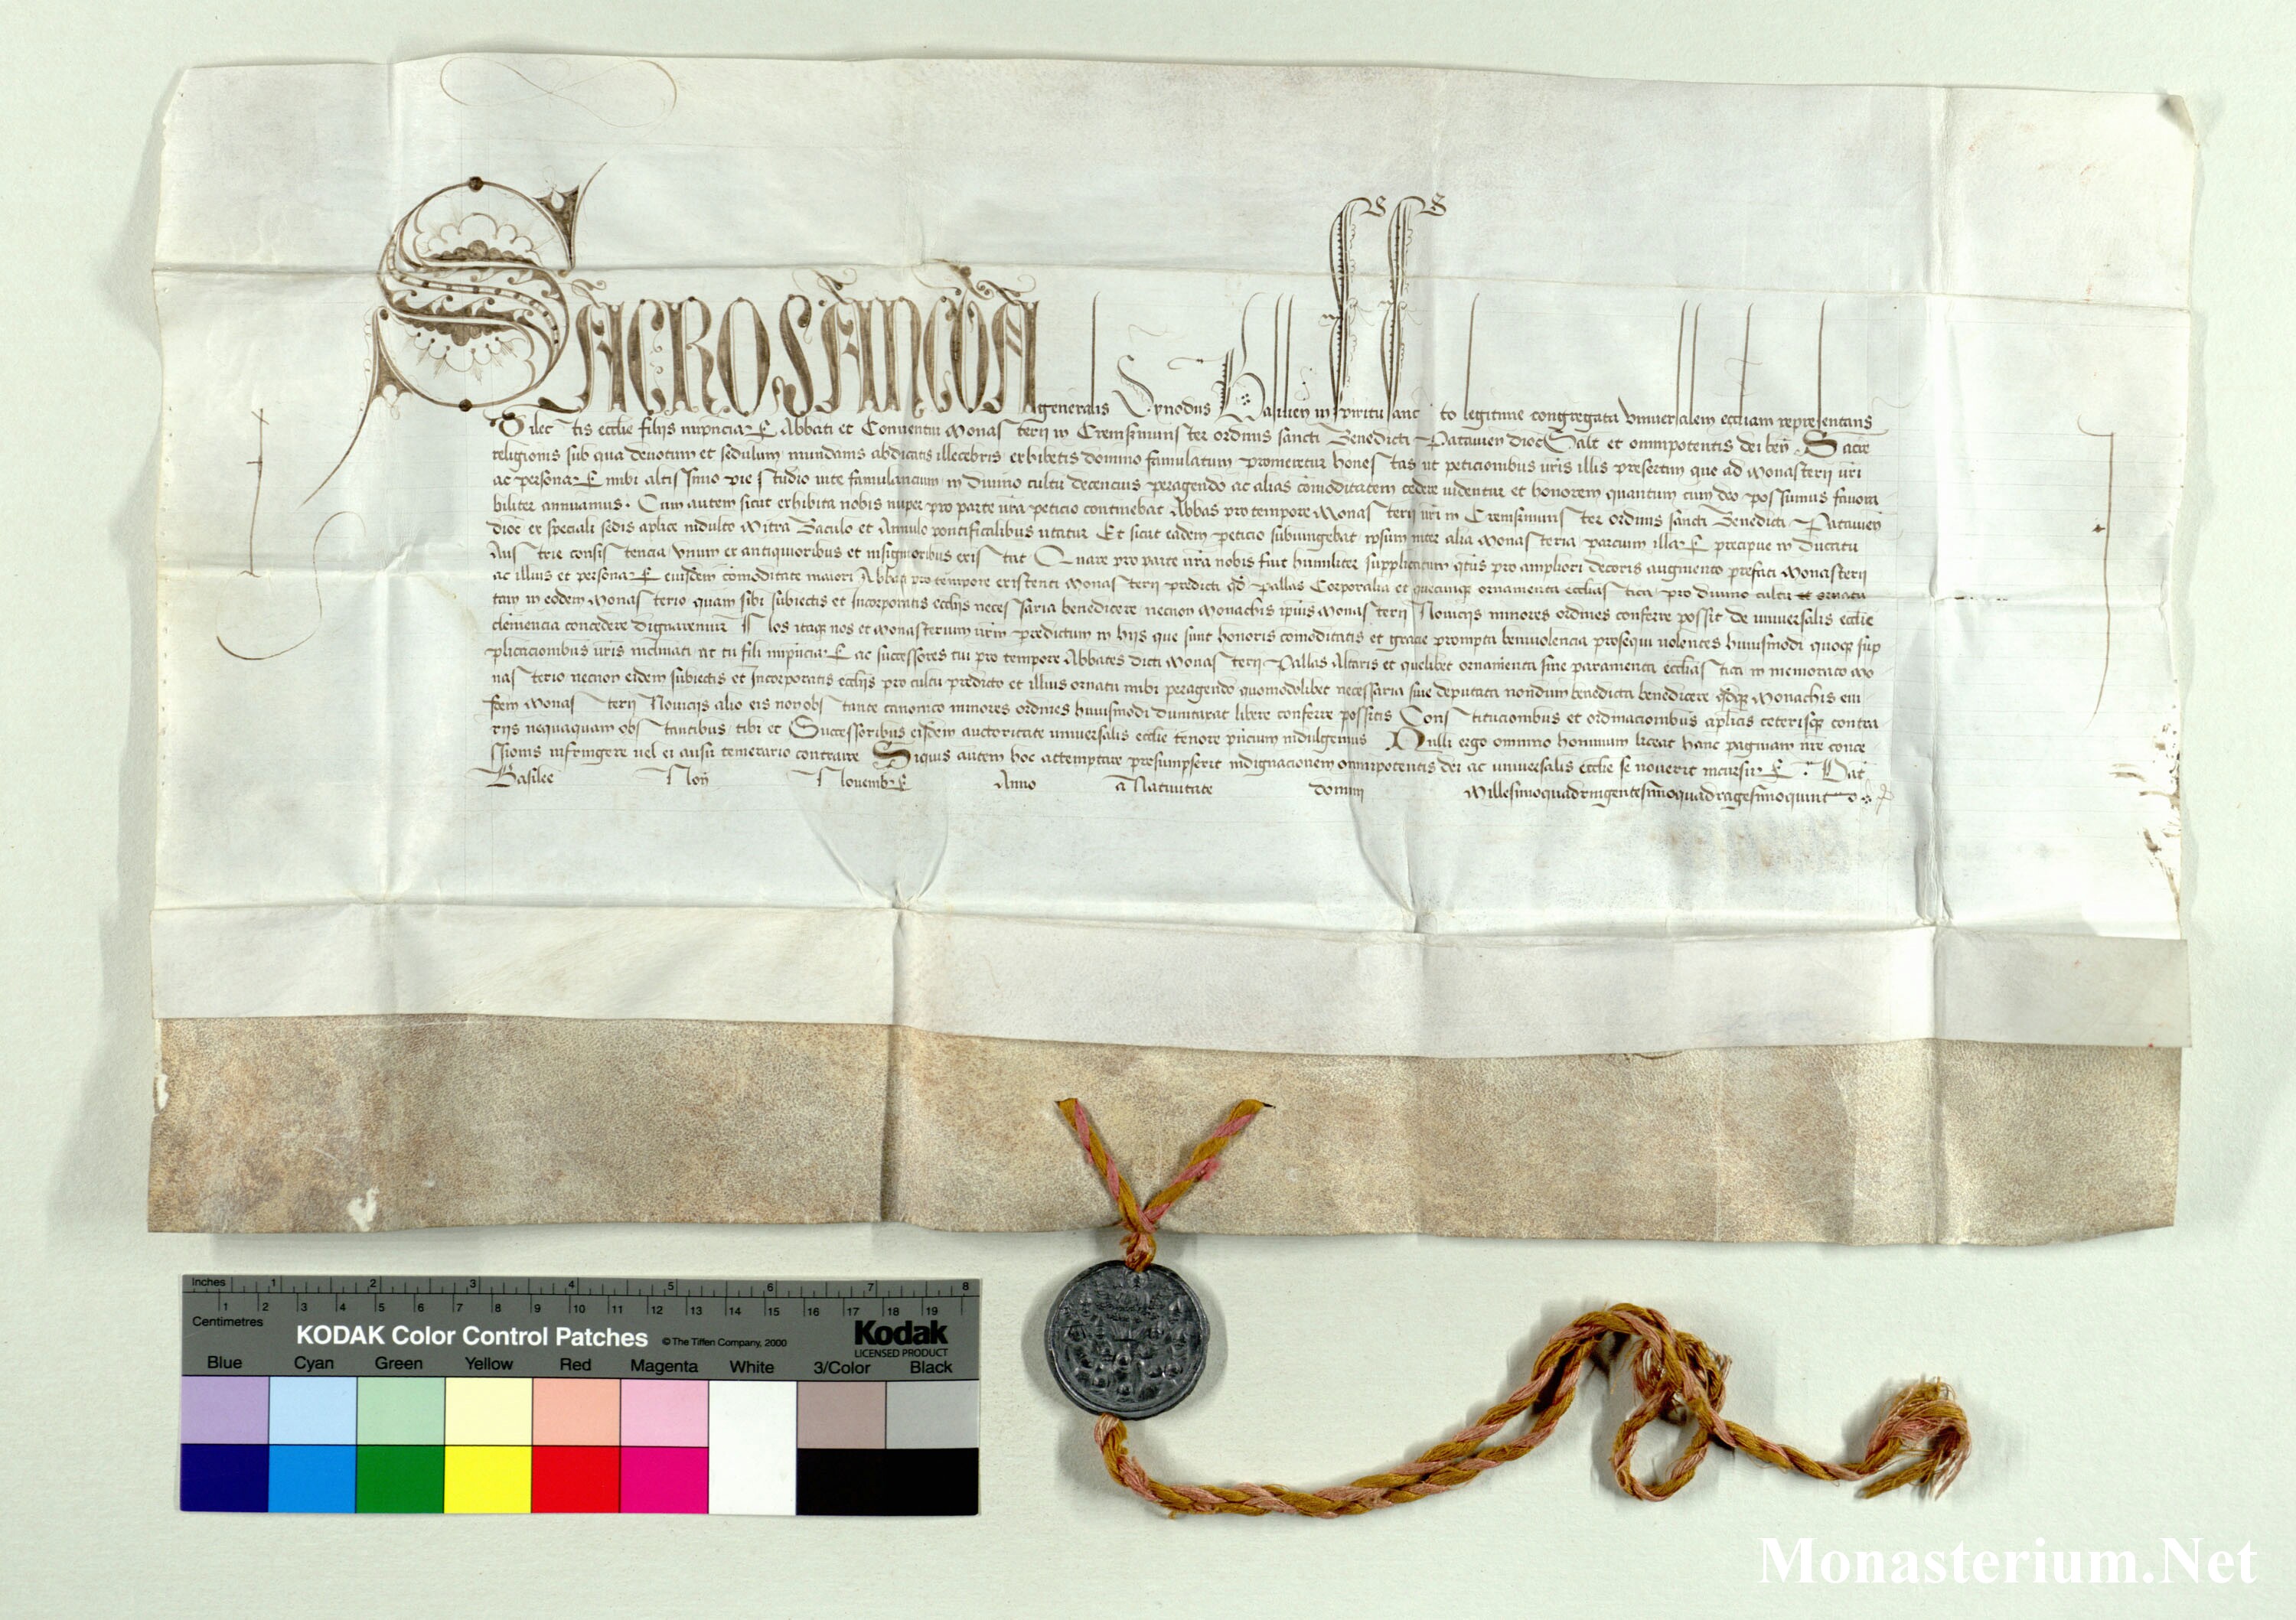 SACROSANCTA generalis Synodus Basilien in spiritu sancto legitime congregata universalem eccliam representans
Dilectis ecclie filijs Abbati et Conventui Monasterii in Cremsmunster ordinis sancti Benedicti Patavien dioc Salt et omnipotentis dei ben Sacre
religionis sub qua devotum et sedulum mundanis abdicatis illecebris exhibetis domino famulatum promeretur honestas ut peticionibus vris illis presertim que ad Monasterii vri
ac personar inibi altissimo pie studio vite famulancium in divino cultu decencius peragendo ac alias comoditatem cedere videntur et honorem quantum cum deo possumus favora
biliter annuamus. Cum autem sicut exhibita nobis nuper pro parte vra peticio continebat Abbas pro tempore Monasterii vri in Cremsmunster ordinis sancti Benedicti Patavien
dioc ex speciali sedis aplice indulto Mitra Baculo et Annulo pontificalibus utatur Et sicut eadem peticio subiungebat ipsum inter alia Monasteria parcium illar precipue in Ducatu
Austrie consistencia unum ex antiquioribus et insignioribus existat Quare pro parte vra nobis fuit humiliter supplicatum qtus pro ampliori decoris augmento prefati Monasterii
ac illius et personar eiusdem comoditate maiori Abbati pro tempore existenti Monasterii predicti qd Pallas Corporalia et quecunque ornamenta ecclesiastica pro divino cultu et ornatu
tam in eodem Monasterio quam sibi subiectis et Incorporatis ecclijs necessaria benedicere necnon Monachis ipius Monasterii Novicijs minores ordines conferre possit de universalis ecclie
clemencia concedere dignaremur Nos itaque vos et Monasterium vrm predictum in hijs que sunt honoris comoditatis et gracie prompta benivolencia prosequi volentes huiusmodi quoque sup
plicacionibus vris inclinati ut tu fili ac successores tui pro tempore Abbates dicti Monasterii Pallas Altaris et quelibet ornamenta sive paramenta ecclesiastica in memorato Mo
nasterio necnon eidem subiectis et Incorporatis ecclijs pro cultu predicto et illius ornatu inibi peragendo quomodolibet necessaria sive deputata nondum benedicta benedicere Monachis eiu
sdem Monasterii Novicijs alio eis non obstante canonico minores ordines huiusmodi dumtaxat libere conferre possitis Constitucionibus et ordinacionibus aplicis ceterisque contra
rijs nequaquam obstantibus tibi et Successoribus eisdem auctoritate universalis ecclie tenore pncium indulgemus Nulli ergo omnino hominum liceat hanc paginam nre conce
ssionis infringere vel ei ausu temerario contraire Siquis autem hoc attemptare presumpserit indignacionem omnipotentis dei ac universalis ecclie se noverit incursur Dat
Basilee Non Novembr Anno a Nativitate domini Millesimoquadringentesimoquadragesimoquinto
Inches 1 2 3 4 5 6 7 8
1 2 3 4 5 6 7 8 9 10 11 12 13 14 15 16 17 18 19
Centimetres
KODAK Color Control Patches ©The Tiffen Company, 2000 Kodak
LICENSED PRODUCT
Blue Cyan Green Yellow Red Magenta White 3/Color Black
Monasterium.Net